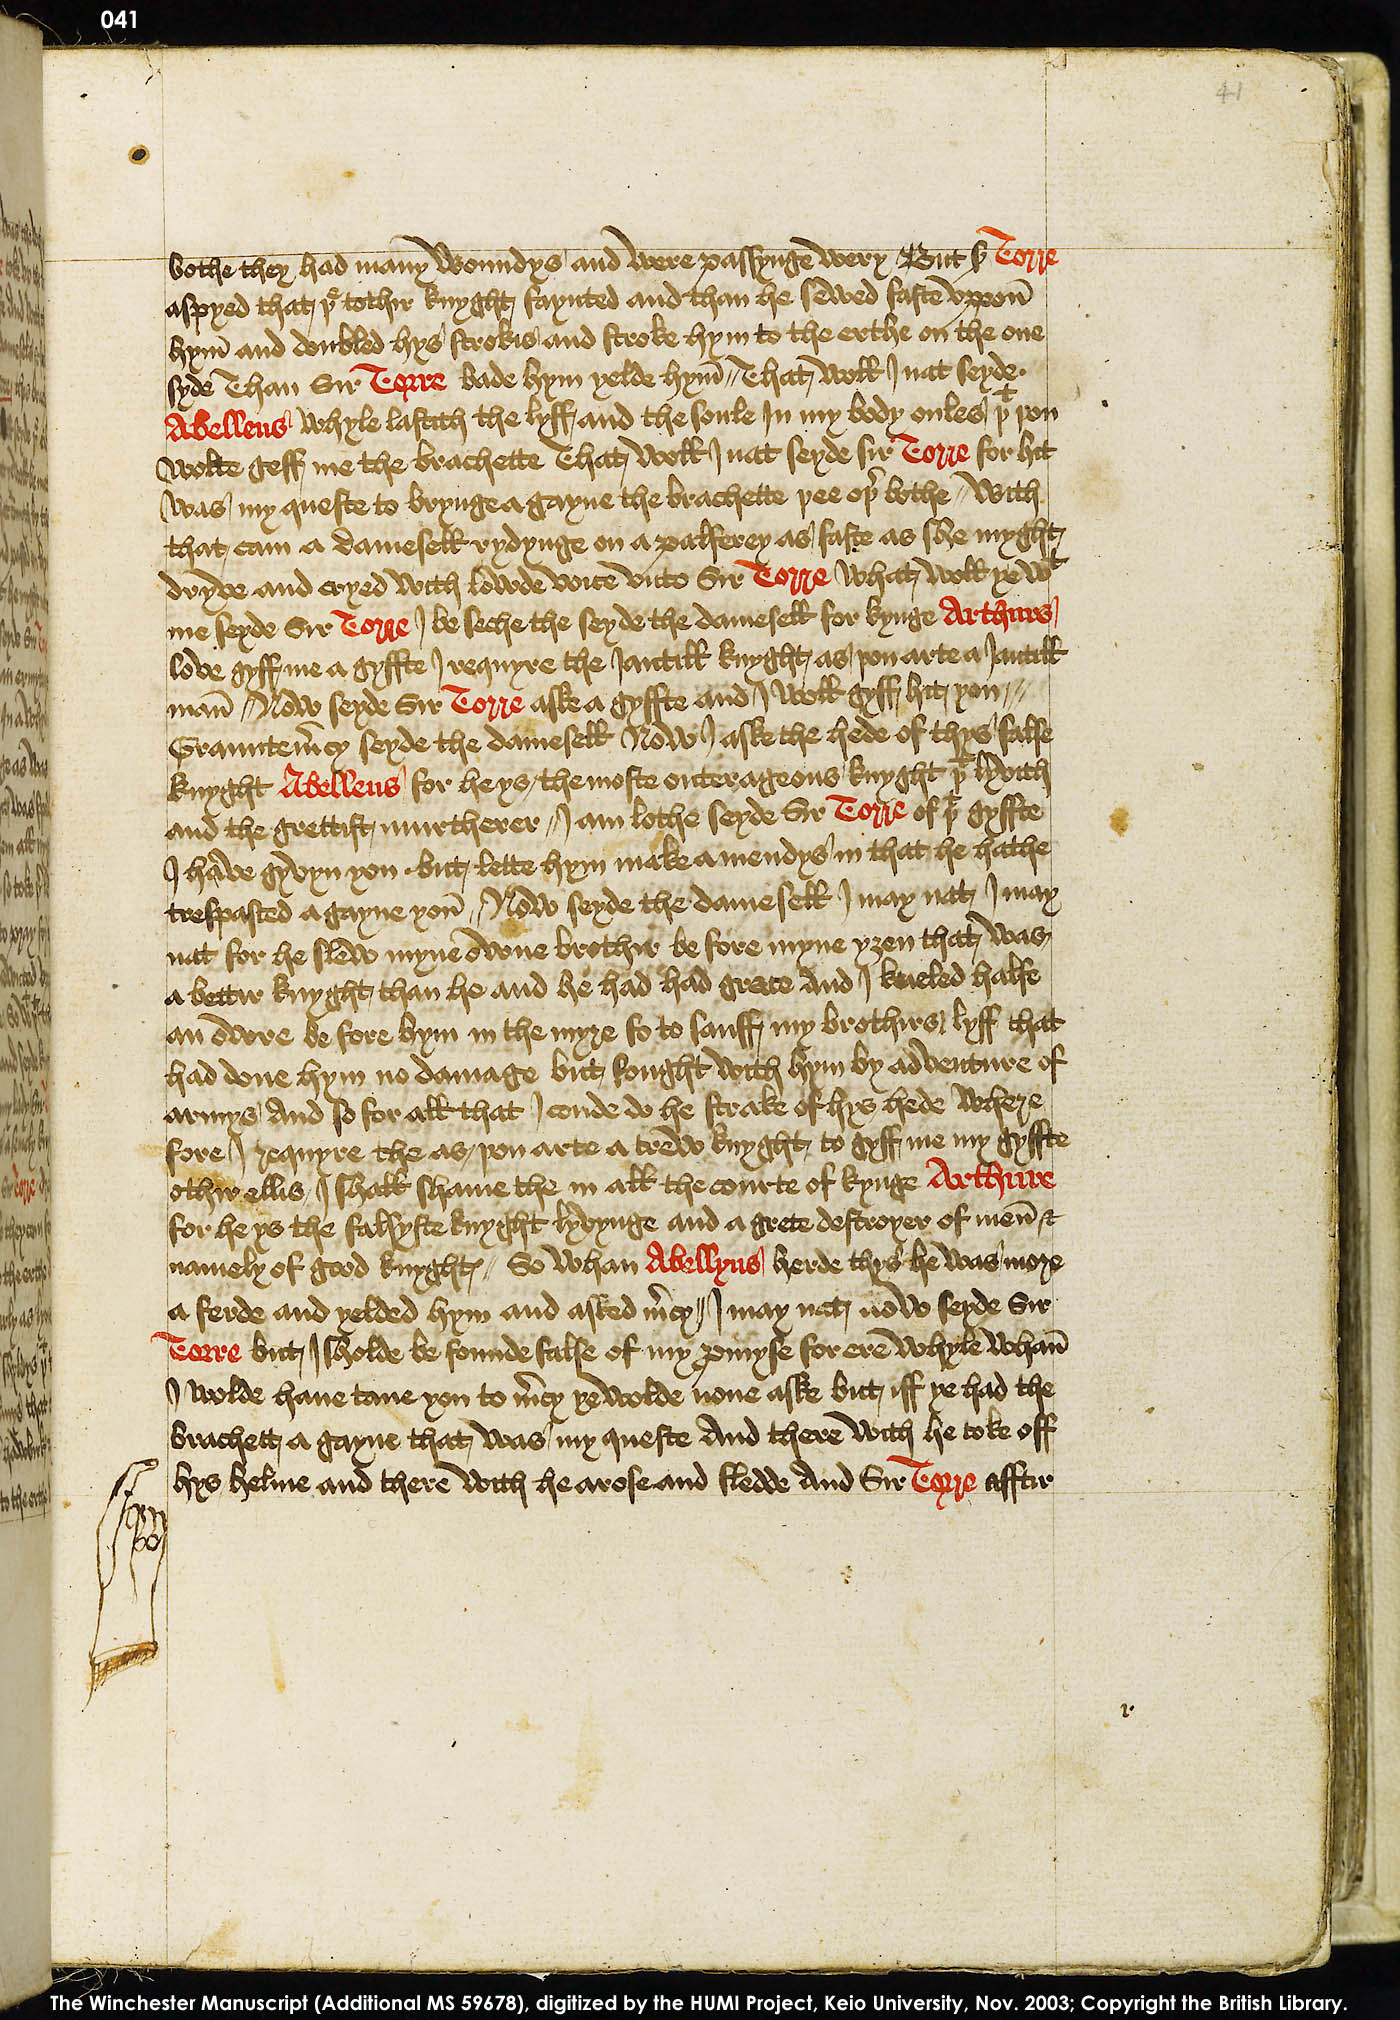 041
41
bothe they had many Woundys and Were passynge Wery But sr Torre
aspyed that þe tothir knyght faynted and than he sewed faste vppon
hym and doubled hys strokis and stroke hym to the erthe on the one
syde Than Sir Torre bade hym yelde hym // That Woll I nat seyde
Abelleus Whyle lastith the lyff and the soule In my body onles þt þou
Wolte geff me the brachette That Woll I nat seyde sir Torre for hit
Was my queste to brynge a gayne the brachette þee oþer bothe // With
that cam a damesell rydynge on a palferey as faste as she myght
dryve and cryed With lowde voice vnto Sir Torre What Woll ye wt
me seyde Sir Torre I be seche the seyde the damesell for kynge Arthurs
love gyff me a gyffte I requyre the Jantill knyght as þou arte a Jantill
man // Now seyde Sir Torre aske a gyffte and I Woll gyff hit you //
Grauntemercy seyde the damesell Now I aske the hede of thys false
knyght Abelleus for he ys the moste outerageous knyght þt lyvith
and the grettist murtherer // I am lothe seyde Sir Torre of þt gyffte
I have gyvyn you but lette hym make a mendys in that he hathe
trespasted a gayne you // Now seyde the damesell I may nat I may
nat for he slew myne owne brothir be fore myne yzen that Was
a bettir knyght than he and he had had grace And I kneled halfe
an owre be fore hym in the myre for to sauff my brothirs lyff that
had done hym no damage but fought With hym by adventure of
armys And so for all that I coude do he strake of hys hede Where
fore I requyre the as þou arte a trew knyght to gyff me my gyffte
othir ellis I shall shame the in all the courte of kynge Arthure
for he ys the falsyste knyght lyvynge and a grete destroyer of men &
namely of good knyghtes // So Whan Abellyus herde thys he Was more
a ferde and yelded hym and asked mercy // I may nat now seyde Sir
Torre but I sholde be founde false of my promyse for ere Whyle Whan
I Wolde have tane you to mercy ye Wolde none aske but iff ye had the
brachett a gayne that Was my queste And there With he toke off
hys helme and there With he arose and fledde And Sir Torre afftir
The Winchester Manuscript (Additional MS 59678), digitized by the HUMI Project, Keio University, Nov. 2003; Copyright the British Library.